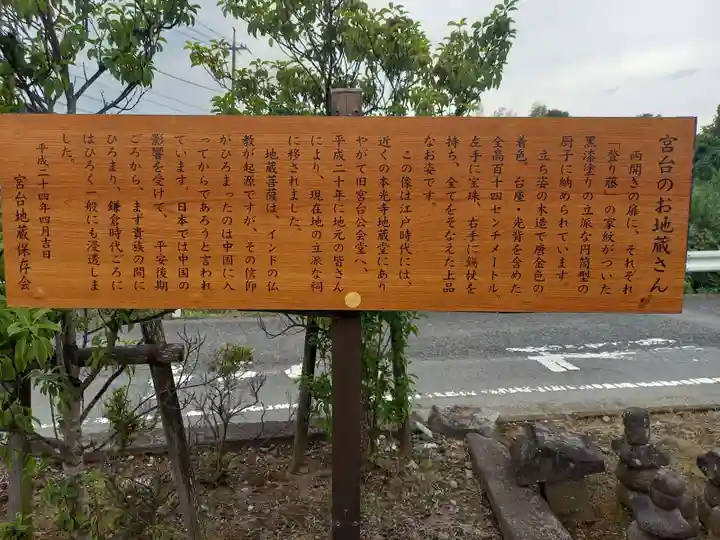 宮台のお地蔵さん
両開きの扉に、それぞれ
「登り藤」の家紋がついた
黒漆塗りの立派な円筒型の
厨子に納められています。
立ち姿の木造で唐金色の
着色、台座、光背を含めた
全高百十四センチメートル。
左手に宝珠、右手に錫杖を
持ち、全てをそなえた上品
なお姿です。
この像は江戸時代には、
近くの本光寺地蔵堂にあり
やがて旧宮台公会堂へ、
平成二十年に地元の皆さん
により、現在地の立派な祠
に移されました。
地蔵菩薩は、インドの仏
教が起源ですが、その信仰
がひろまったのは中国に入
ってからであろうと言われ
ています。日本では中国の
影響を受けて、平安後期
ごろから、まず貴族の間に
ひろまり、鎌倉時代ごろに
はひろく一般にも浸透しま
した。
平成二十四年四月吉日
宮台地蔵保存会